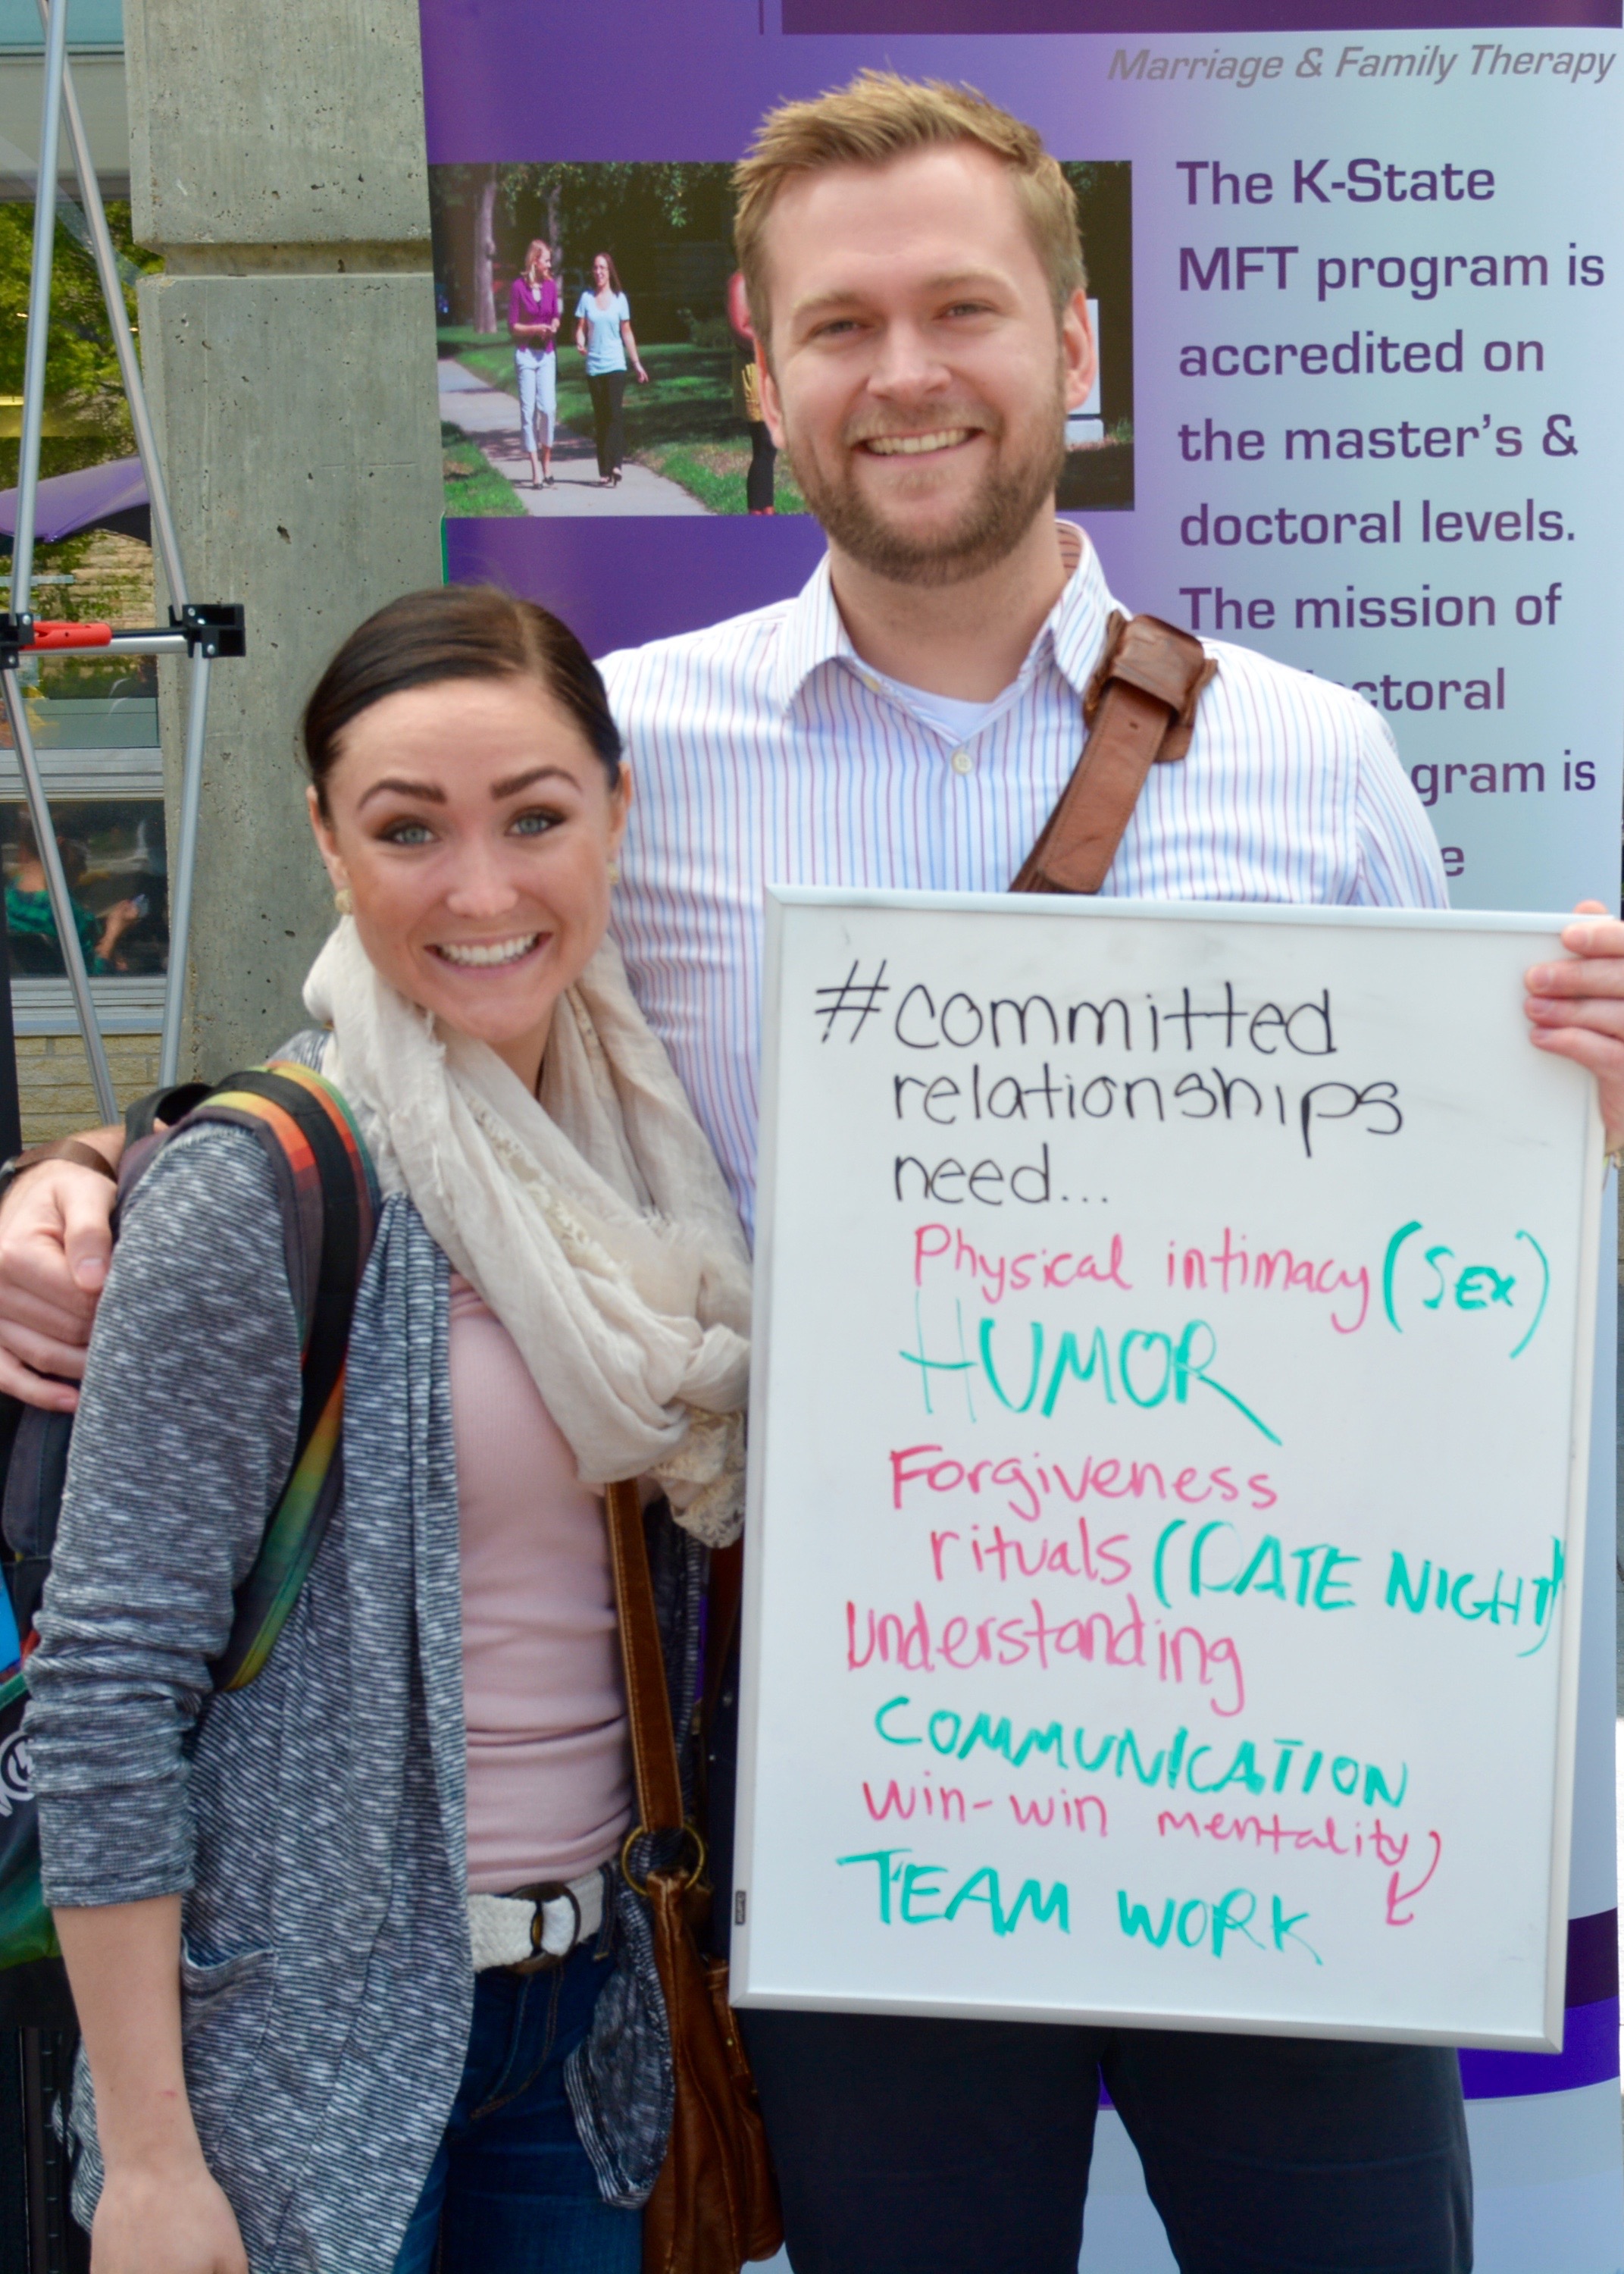 Marriage & Family Therapy
The K-State
MFT program is
accredited on
the master's &
doctoral levels.
The mission of
#committed
relationships
need...
Physical intimacy (SEX)
HUMOR
Forgiveness
rituals (DATE NIGHT)
Understanding
COMMUNICATION
win-win mentality
TEAM WORK